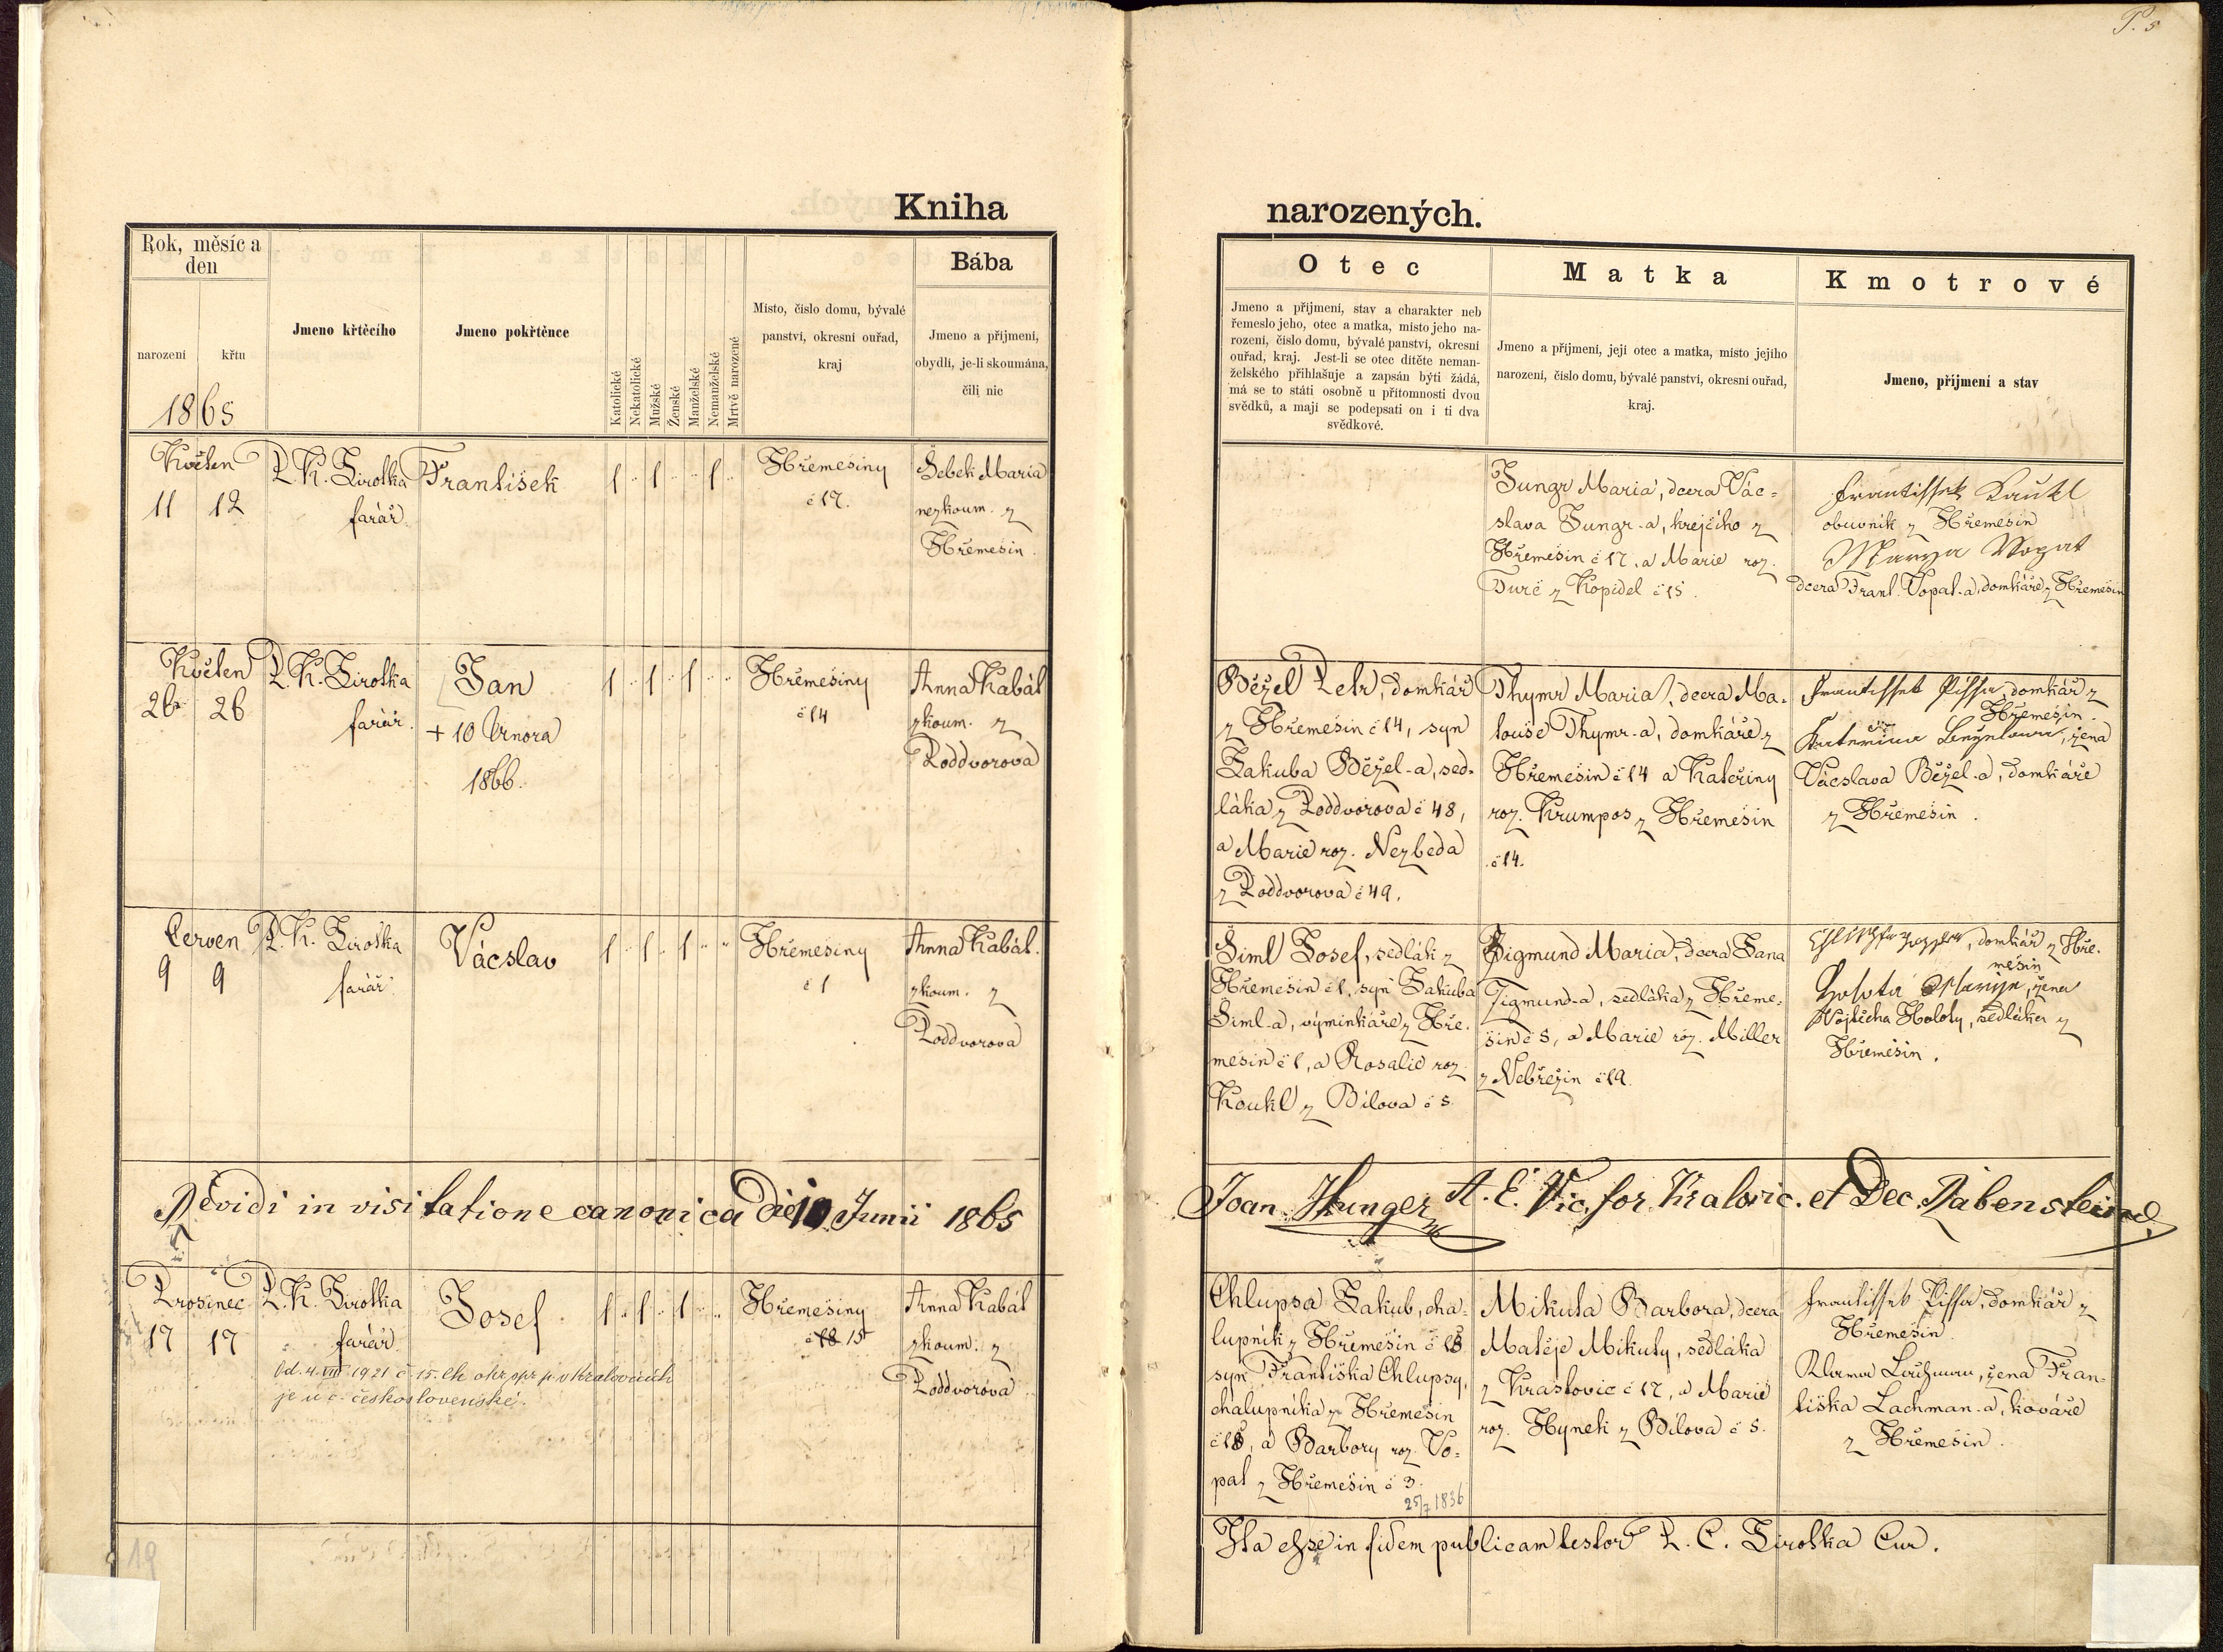 P. 5
Kniha narozených.
Rok, měsíc a den
narození
křtu
1865
Jmeno křtěcího
Jmeno pokřtěnce
Katolické
Nekatolické
Mužské
Ženské
Manželské
Nemanželské
Mrtvě narozené
Místo, číslo domu, bývalé
panství, okresní ouřad,
kraj
Bába
Jmeno a příjmení,
obydlí, je-li skoumána,
čili nic
Otec
Jmeno a příjmení, stav a charakter neb
řemeslo jeho, otec a matka, místo jeho na-
rození, číslo domu, bývalé panství, okresní
ouřad, kraj. Jest-li se otec dítěte neman-
želského přihlašuje a zapsán býti žádá,
má se to státi osobně u přítomnosti dvou
svědků, a mají se podepsati on i ti dva
svědkové.
Matka
Jmeno a příjmení, její otec a matka, místo jejího
narození, číslo domu, bývalé panství, okresní ouřad,
kraj.
Kmotrové
Jmeno, příjmení a stav
Květen
11 12
P. K. Sirotka
farář.
František
1 " 1 " " 1 "
Hřemešiny
č 17.
Šebek Maria
nezkoum. z
Hřemešin.
Jungr Maria, dcera Vác=
slava Jungr-a, krejčího z
Hřemešin č 17, a Marie roz.
Turč z Kopidel č 15.
Frantissek Kaukl
obuvník z Hřemešin
Marya Wopat
dcera Frant. Vopat-a, domkáře z Hřemešin
Květen
26 26
P. K. Sirotka
farář.
Jan
+ 10 Února
1866.
1 " 1 " 1 " "
Hřemešiny
č 14
Anna Kabát
zkoum. z
Poddvorova
Běžel Petr, domkář
z Hřemešin č 14, syn
Jakuba Běžel-a, sed-
láka z Poddvorova č 48,
a Marie roz. Nezbeda
z Poddvorova č 49.
Thymr Maria, dcera Ma-
touše Thymr-a, domkáře z
Hřemešin č 14 a Kateřiny
roz. Krumpos z Hřemešin
č 14.
Frantissek Pissa, domkář z
Hřemešin.
žena
Vácslava Běžel-a, domkáře
z Hřemešin.
Červen
9 9
P. K. Sirotka
farář.
Vácslav
1 " 1 " 1 " "
Hřemešiny
č 1
Anna Kabát.
zkoum. z
Poddvorova
Šiml Josef, sedlák z
Hřemešin č 1, syn Jakuba
Šiml-a, výminkáře z Hře-
mešin č 1, a Rosalie roz.
Koukl z Bílova č 5.
Zigmund Maria, dcera Jana
Zigmund-a, sedláka z Hřeme-
šin č 5, a Marie roz. Miller
z Nebřezin č 19.
domkář z Hře-
mešin
Holota Marye, žena
Vojtěcha Holoty, sedláka z
Hřemešin.
Revidi in visitatione canonica die 10 Junii 1865
Joan. Hunger A. E. Vic. for. Kralovic. et Dec. Rabenstein
Prosinec
17 17
P. K. Sirotka
farář
Josef
1 " 1 " 1 " "
Hřemešiny
č 18 15
Anna Kabát
zkoum. z
Poddvorova
Od. 4. VIII 1921 č. 15. v Kralovicích
je u c. československé.
Chlupsa Jakub, cha-
lupník z Hřemešin č 15
syn Františka Chlupsy,
chalupníka z Hřemešin
č 15, a Barbory roz. Vo=
pat z Hřemešin č 3.
25/7 1836
Mikuta Barbora, dcera
Matěje Mikuty, sedláka
z Hrastovic č 17, a Marie
roz. Hynek z Bílova č 5.
Frantissek Pissa, domkář z
Hřemešin.
žena Fran-
tiška Lachman-a, kováře
z Hřemešin.
Ita esse in fidem publicam testor P. C. Sirotka Cur.
19